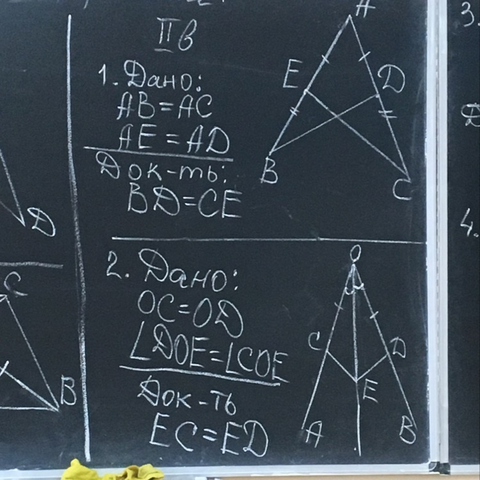 IIв
1. Дано:
AB=AC
AE=AD
Док-ть:
BD=CE
A
E
D
B
C
2. Дано:
OC=OD
∠DOE=∠COE
Док-ть
EC=ED
O
C
D
E
A
B
D
C
B
3.
4.